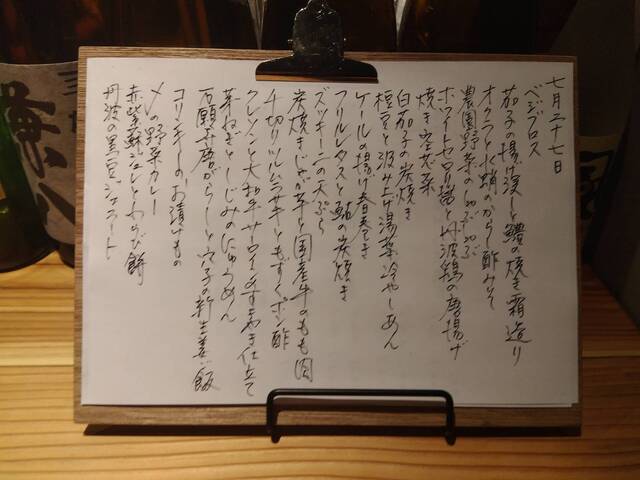 七月二十七日
ベジブロス
茄子の揚げ浸しと鱧の焼き霜造り
オクラと水蛸のから酢みそ
農園野菜のしゃぶしゃぶ
ホワイトセロリ醤と丹波鶏の唐揚げ
焼き空芯菜
白茄子の炭焼き
枝豆と汲み上げ湯葉冷やしあん
ケールの揚げ春巻き
フリルレタスと鮎の炭焼き
ズッキーニの天ぷら
炭焼きじゃが芋と国産牛のもも肉
千切りツルムラサキともずくポン酢
クレソンと大和牛サーロインのすきやき仕立て
芽ねぎとしじみのにゅうめん
万願寺唐がらしと穴子の新生姜ご飯
コリンキーのお漬けもの
〆の野菜カレー
赤紫蘇ジュレとわらび餅
丹波の黒豆ジェラート
兼八